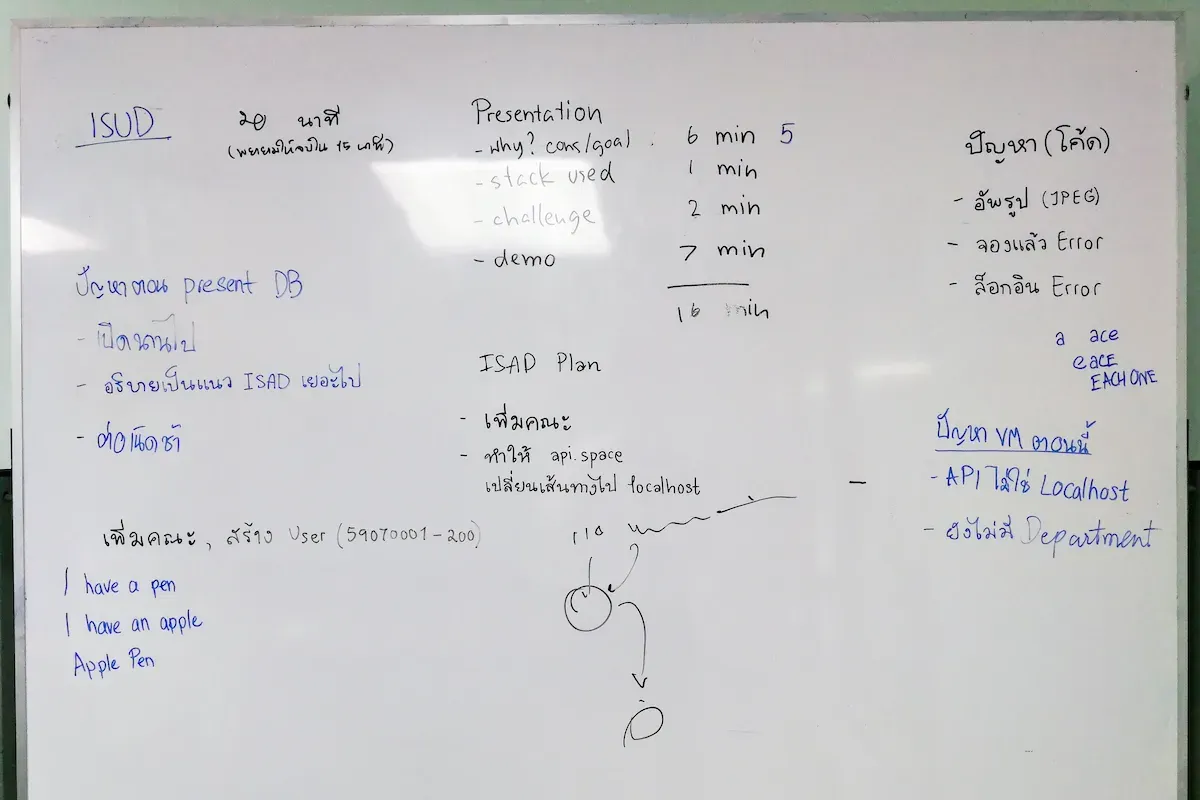 ISUD
20 นาที
(พยายามให้จบใน 15 นาที)
Presentation
- Why? cons/goal : 6 min 5
- stack used 1 min
- challenge 2 min
- demo 7 min
16 min
ปัญหา (โค้ด)
- อัพรูป (JPEG)
- จองแล้ว Error
- ล็อกอิน Error
a ace
e acE
EACH ONE
ปัญหาตอน present DB
- เปิดนานไป
- อธิบายเป็นแนว ISAD เยอะไป
- ต่อเน็ตช้า
ISAD Plan
- เพิ่มคณะ
- ทำให้ api.space
เปลี่ยนเส้นทางไป localhost
ปัญหา VM ตอนนี้
- API ไม่ใช่ Localhost
- ยังไม่มี Department
เพิ่มคณะ, สร้าง User (59070001-200)
I have a pen
I have an apple
Apple Pen